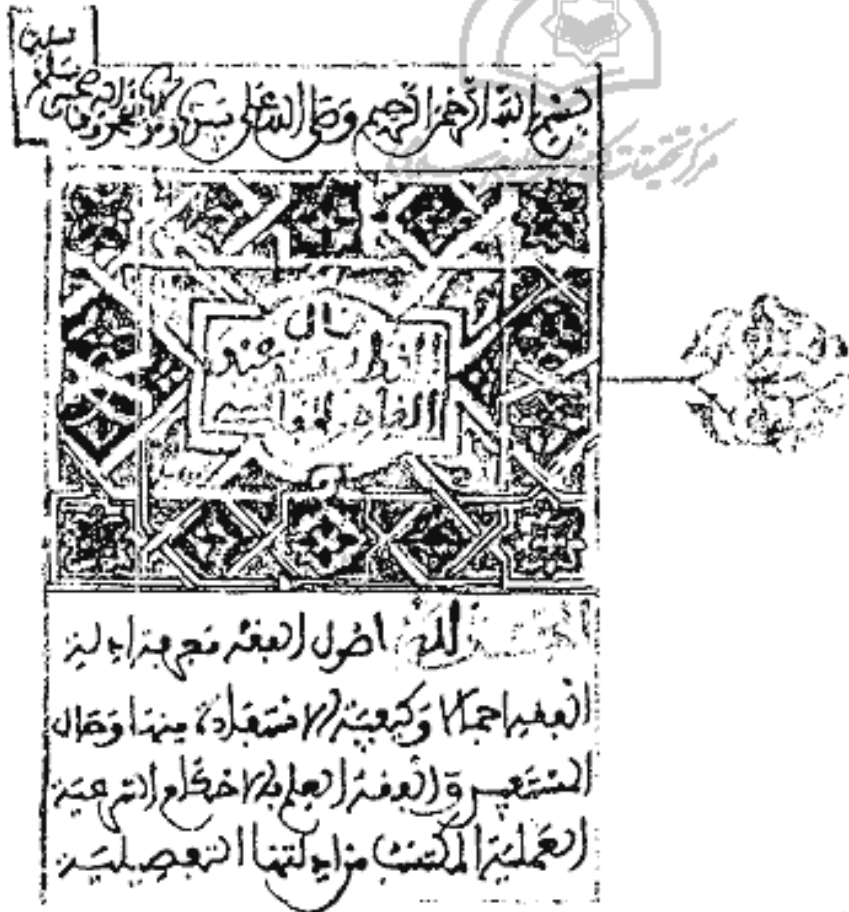 بسم الله الرحمن الرحيم وصلى الله على سيدنا ومولانا محمد
وسلم
تسليما
مركز تحقيقات
قال
الله اصول الفقه معرفة ادلة
الفقه اجمالا وكيفية الاستفادة منها وحال
المستفيد والفقه العلم بالاحكام الشرعية
العملية المكتسب من ادلتها التفصيلية